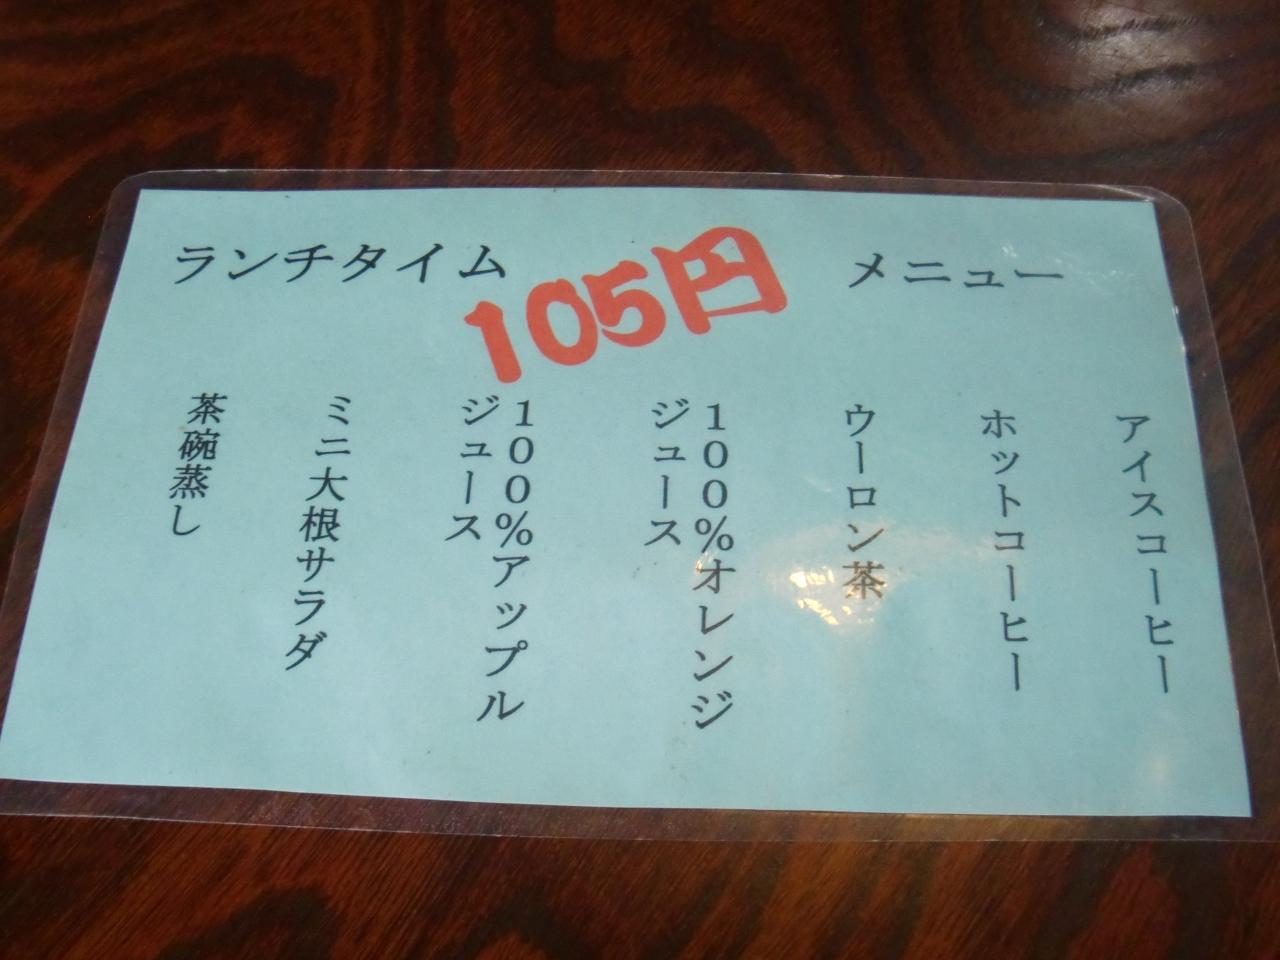 ランチタイム 105円 メニュー
アイスコーヒー
ホットコーヒー
ウーロン茶
100%オレンジ
ジュース
100%アップル
ジュース
ミニ大根サラダ
茶碗蒸し